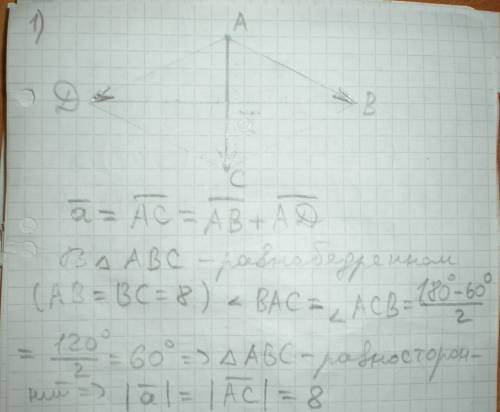 1)
A
D
B
C
a̅ = A̅C̅ = A̅B̅ + A̅D̅
В △ ABC - равнобедренном
(AB = BC = 8) ∠ BAC = ∠ ACB = (180° - 60°)/2
= 120°/2 = 60° => △ ABC - равносторон-
ний => |a̅| = |A̅C̅| = 8